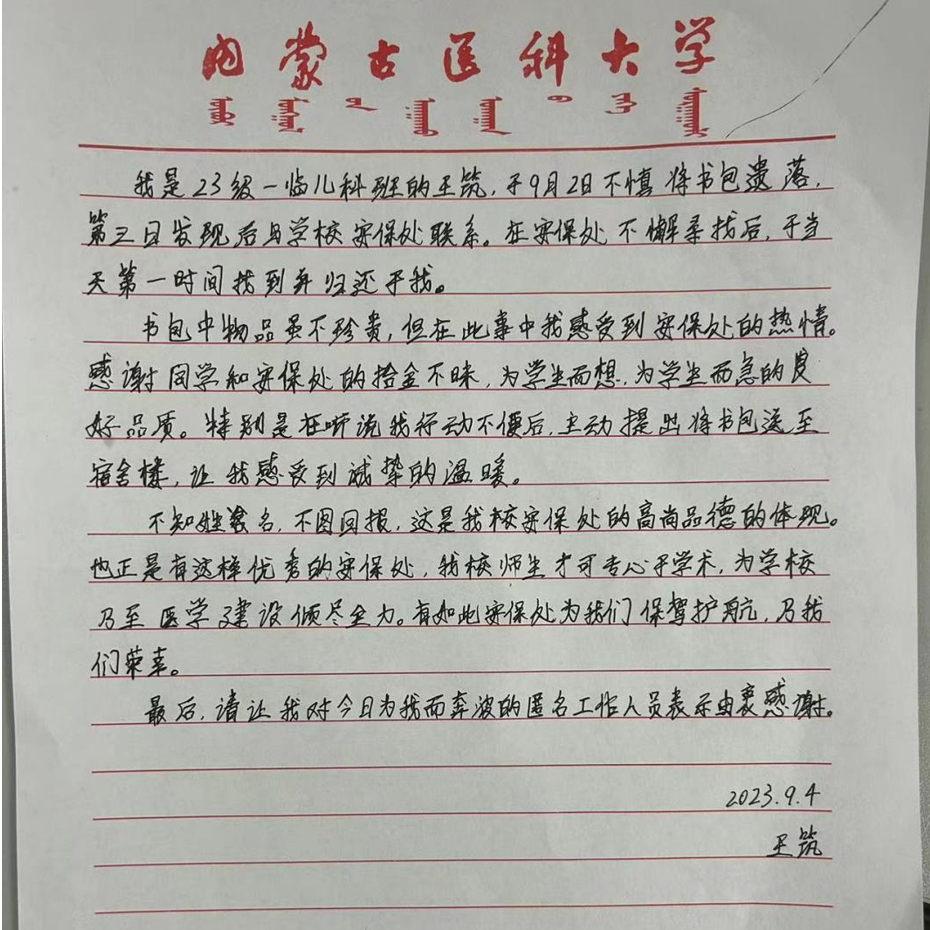 内蒙古医科大学
我是23级一临儿科班的王筑,于9月2日不慎将书包遗落,
第三日发现后与学校安保处联系。在安保处不懈寻找后,于当
天第一时间找到并归还于我。
书包中物品虽不珍贵,但在此事中我感受到安保处的热情。
感谢同学和安保处的拾金不昧,为学生而想,为学生而急的良
好品质。特别是在听说我行动不便后,主动提出将书包送至
宿舍楼,让我感受到诚挚的温暖。
不知姓名,不图回报,这是我校安保处的高尚品德的体现。
也正是有这样优秀的安保处,我校师生才可专心于学术,为学校
乃至医学建设倾尽全力。有如此安保处为我们保驾护航,乃我
们荣幸。
最后,请让我对今日为我而奔波的匿名工作人员表示由衷感谢。
2023.9.4
王筑